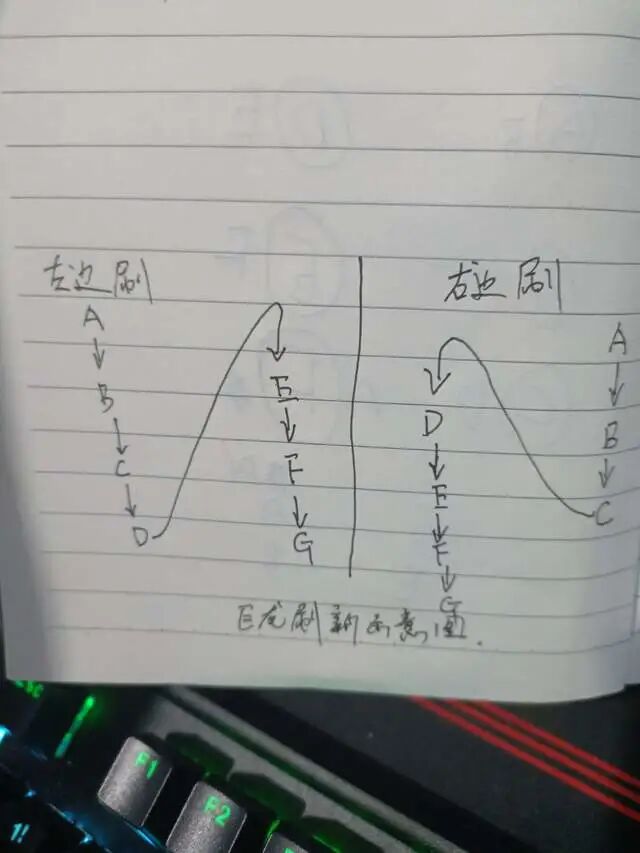 左边刷
A
B
C
D
E
F
G
右边刷
A
B
C
D
E
F
G
巨龙刷新示意图.
Esc
F1
F2
1!